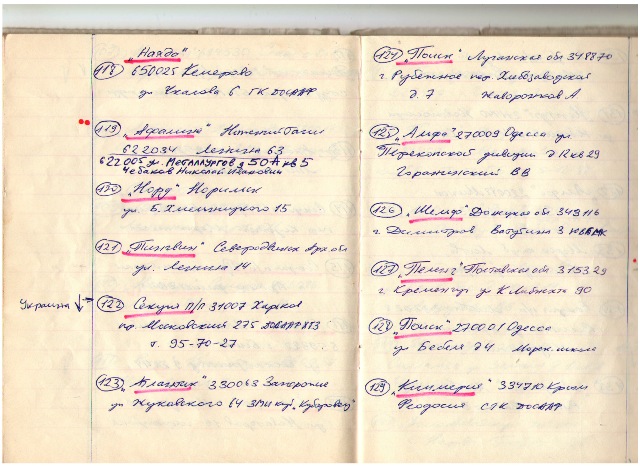 „Наяда"
118 650025 Кемерово
ул Чкалова 6 ГК ДОСААФ
119 „Афалина" Нижний Тагил
622034 Ленина 63
622005 ул. Металлургов д 50А кв 5
Чебаков Николай Иванович
120 „Норд" Норильск
ул. Б. Хмельницкого 15
121 „Пингвин" Северодвинск Арх обл
ул. Ленина 14
Украина
122 Секция П/П 31007 Харьков
пр. Московский 275 ДОСААФ ХТЗ
т. 95-70-27
123 „Атлантик" 330063 Запорожье
ул Жуковского 64
124 „Поиск" Луганская обл 349870
г. Рубежное пер. Хлебозаводской
д. 7 Жаворонков А
125 270009 Одесса ул.
Перекопской дивизии д кв 29
ВВ
126 „Шельф" Донецкая обл 349116
г. Димитров Ватутина 3
127 „Пеленг" Полтавская обл 315329
г. Кременчуг ул К Либкнехта 90
128 „Поиск" 270001 Одесса
ул Бебеля 74 Морск. школа
129 „Киммерия" 334710 Крым
Феодосия СТК ДОСААФ